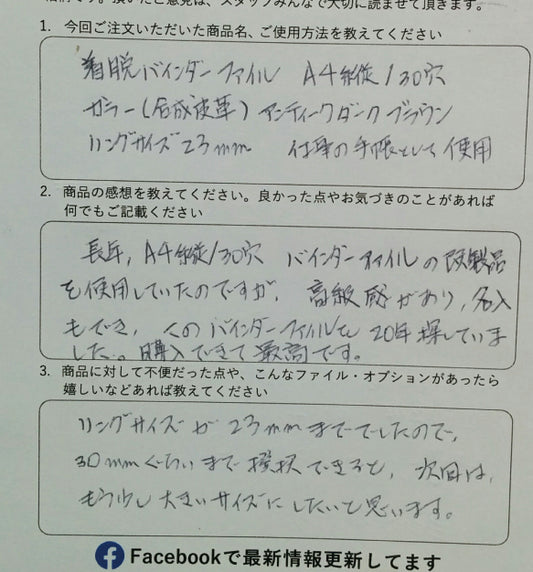 頂いたご意見は、スタッフみんなで大切に読ませて頂きます。
1. 今回ご注文いただいた商品名、ご使用方法を教えてください
着脱バインダーファイル A4縦/30穴
カラー(合成皮革) アンティークダークブラウン
リングサイズ23mm 仕事の手帳として使用
2. 商品の感想を教えてください。良かった点やお気づきのことがあれば
何でもご記載ください
長年、A4縦/30穴 バインダーファイルの既製品
を使用していたのですが、高級感があり、名入
もでき、このバインダーファイルを20年探していま
した。購入できて最高です。
3. 商品に対して不便だった点や、こんなファイル・オプションがあったら
嬉しいなどあれば教えてください
リングサイズが23mmまででしたので、
30mmくらいまで選択できると、次回は、
もう少し大きいサイズにしたいと思います。
Facebookで最新情報更新してます